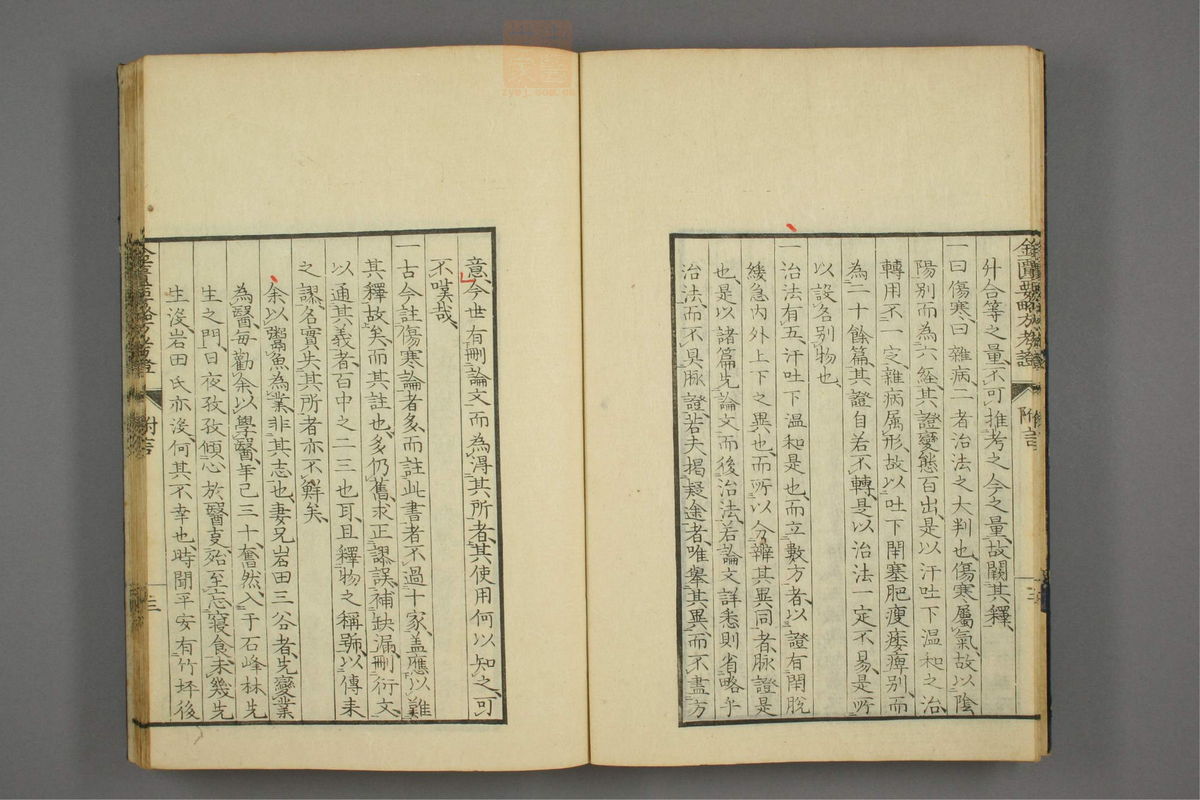 升合等之量、不可推考之今之量、故闕其釋、
一曰傷寒、曰雜病、二者治法之大判也、傷寒屬氣、故以陰
陽別而為六經、其證變態百出、是以汗吐下温和之治、
轉用不一定、雜病属形、故以吐下閉塞肥瘦痿痺別、而
為二十餘篇、其證自若、不轉、是以治法一定不易、是所
以設各別物也、
一治法有五、汗吐下温和是也、而立數方者、以證有閉脫
緩急内外上下之異也、而所以分辨其異同者、脉證是
也、是以諸篇先論文而後治法、若論文詳悉、則省略乎
治法、而不具脉證、若夫揭疑途者、唯舉其異、而不盡方
意、今世有刪論文而為淂其所者、其使用何以知之、可
不嘆哉、
一古今註傷寒論者多、而註此書者、不過十家、盖應以難
其釋故矣、而其註也、多仍舊求正、謬誤補缺漏、刪衍文、
以通其義者、百中之二三也耳、且釋物之稱號、以傳来
之謬、名實失其所者、亦不鮮矣、
余以鬻魚為業、非其志也、妻兄岩田三谷者、先變業
為醫、每勸余以學醫、年已三十、奮然入于石峰林先
生之門、日夜孜孜傾心於醫㕝、殆至忘寢食、未幾先
生沒、岩田氏亦沒、何其不幸也、時聞平安有竹坪後
金匱要略方考證
附言
三
金匱要略方考證
附言
zysj.com.cn